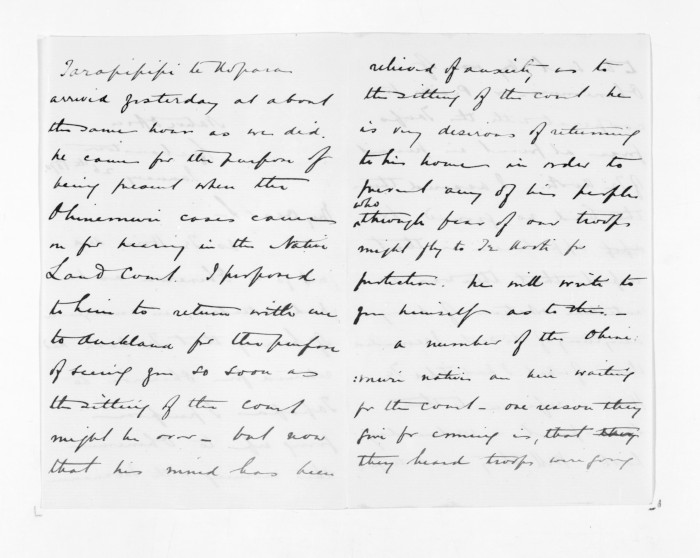 Tarapipipi te Kopara
arrived yesterday at about
the same hour as we did.
he came for the purpose of
being present when the
Ohinemuri cases came
on for hearing in the Native
Land Court. I proposed
to him to return with me
to Auckland for the purpose
of seeing you so soon as
the sitting of the Court
might be over – but now
that his mind has been
relieved of anxiety, as to
the sitting of the court he
is very desirous of returning
to his home in order to
prevent any of his people
who
through fear of our troops
might fly to Te Kooti for
protection. he will write to
you himself as to this. –
a number of the Ohine:
:muri natives are here waiting
for the Court – one reason they
give for coming is, that they
they heard troops were going